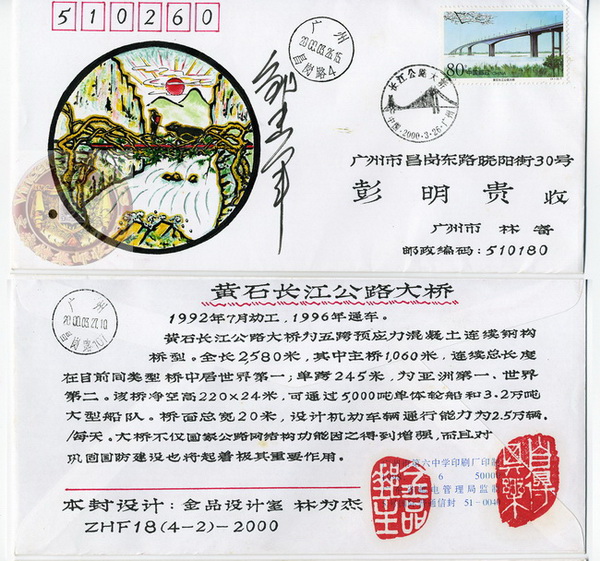 510260
广州
2000.03.26.15
昌岗路4
80分
中国邮政 CHINA
长江公路大桥
中国·2000·3·26·广州
广州市昌岗东路晓阳街30号
彭明贵 收
广州市 林
邮政编码：510180
黄石长江公路大桥
广州
2000.03.27.10
1992年7月动工，1996年通车。
黄石长江公路大桥为五跨预应力混凝土连续钢构
桥型。全长2580米，其中主桥1,060米，连续总长度
在目前同类型桥中居世界第一；单跨245米，为亚洲第一、世界
第二。该桥净空高220×24米，可通过5,000吨单体轮船和3.2万吨
大型船队。桥面总宽20米，设计机动车辆通行能力为2.5万辆
/每天。大桥不仅国家公路网结构功能因之得到增强，而且对
巩固国防建设也将起着极其重要作用。
第六中学印刷厂印制
6 5000
电管理局监制
通信封 51-004
自得其乐
本封设计：金品设计室 林为杰
ZHF18(4-2)-2000